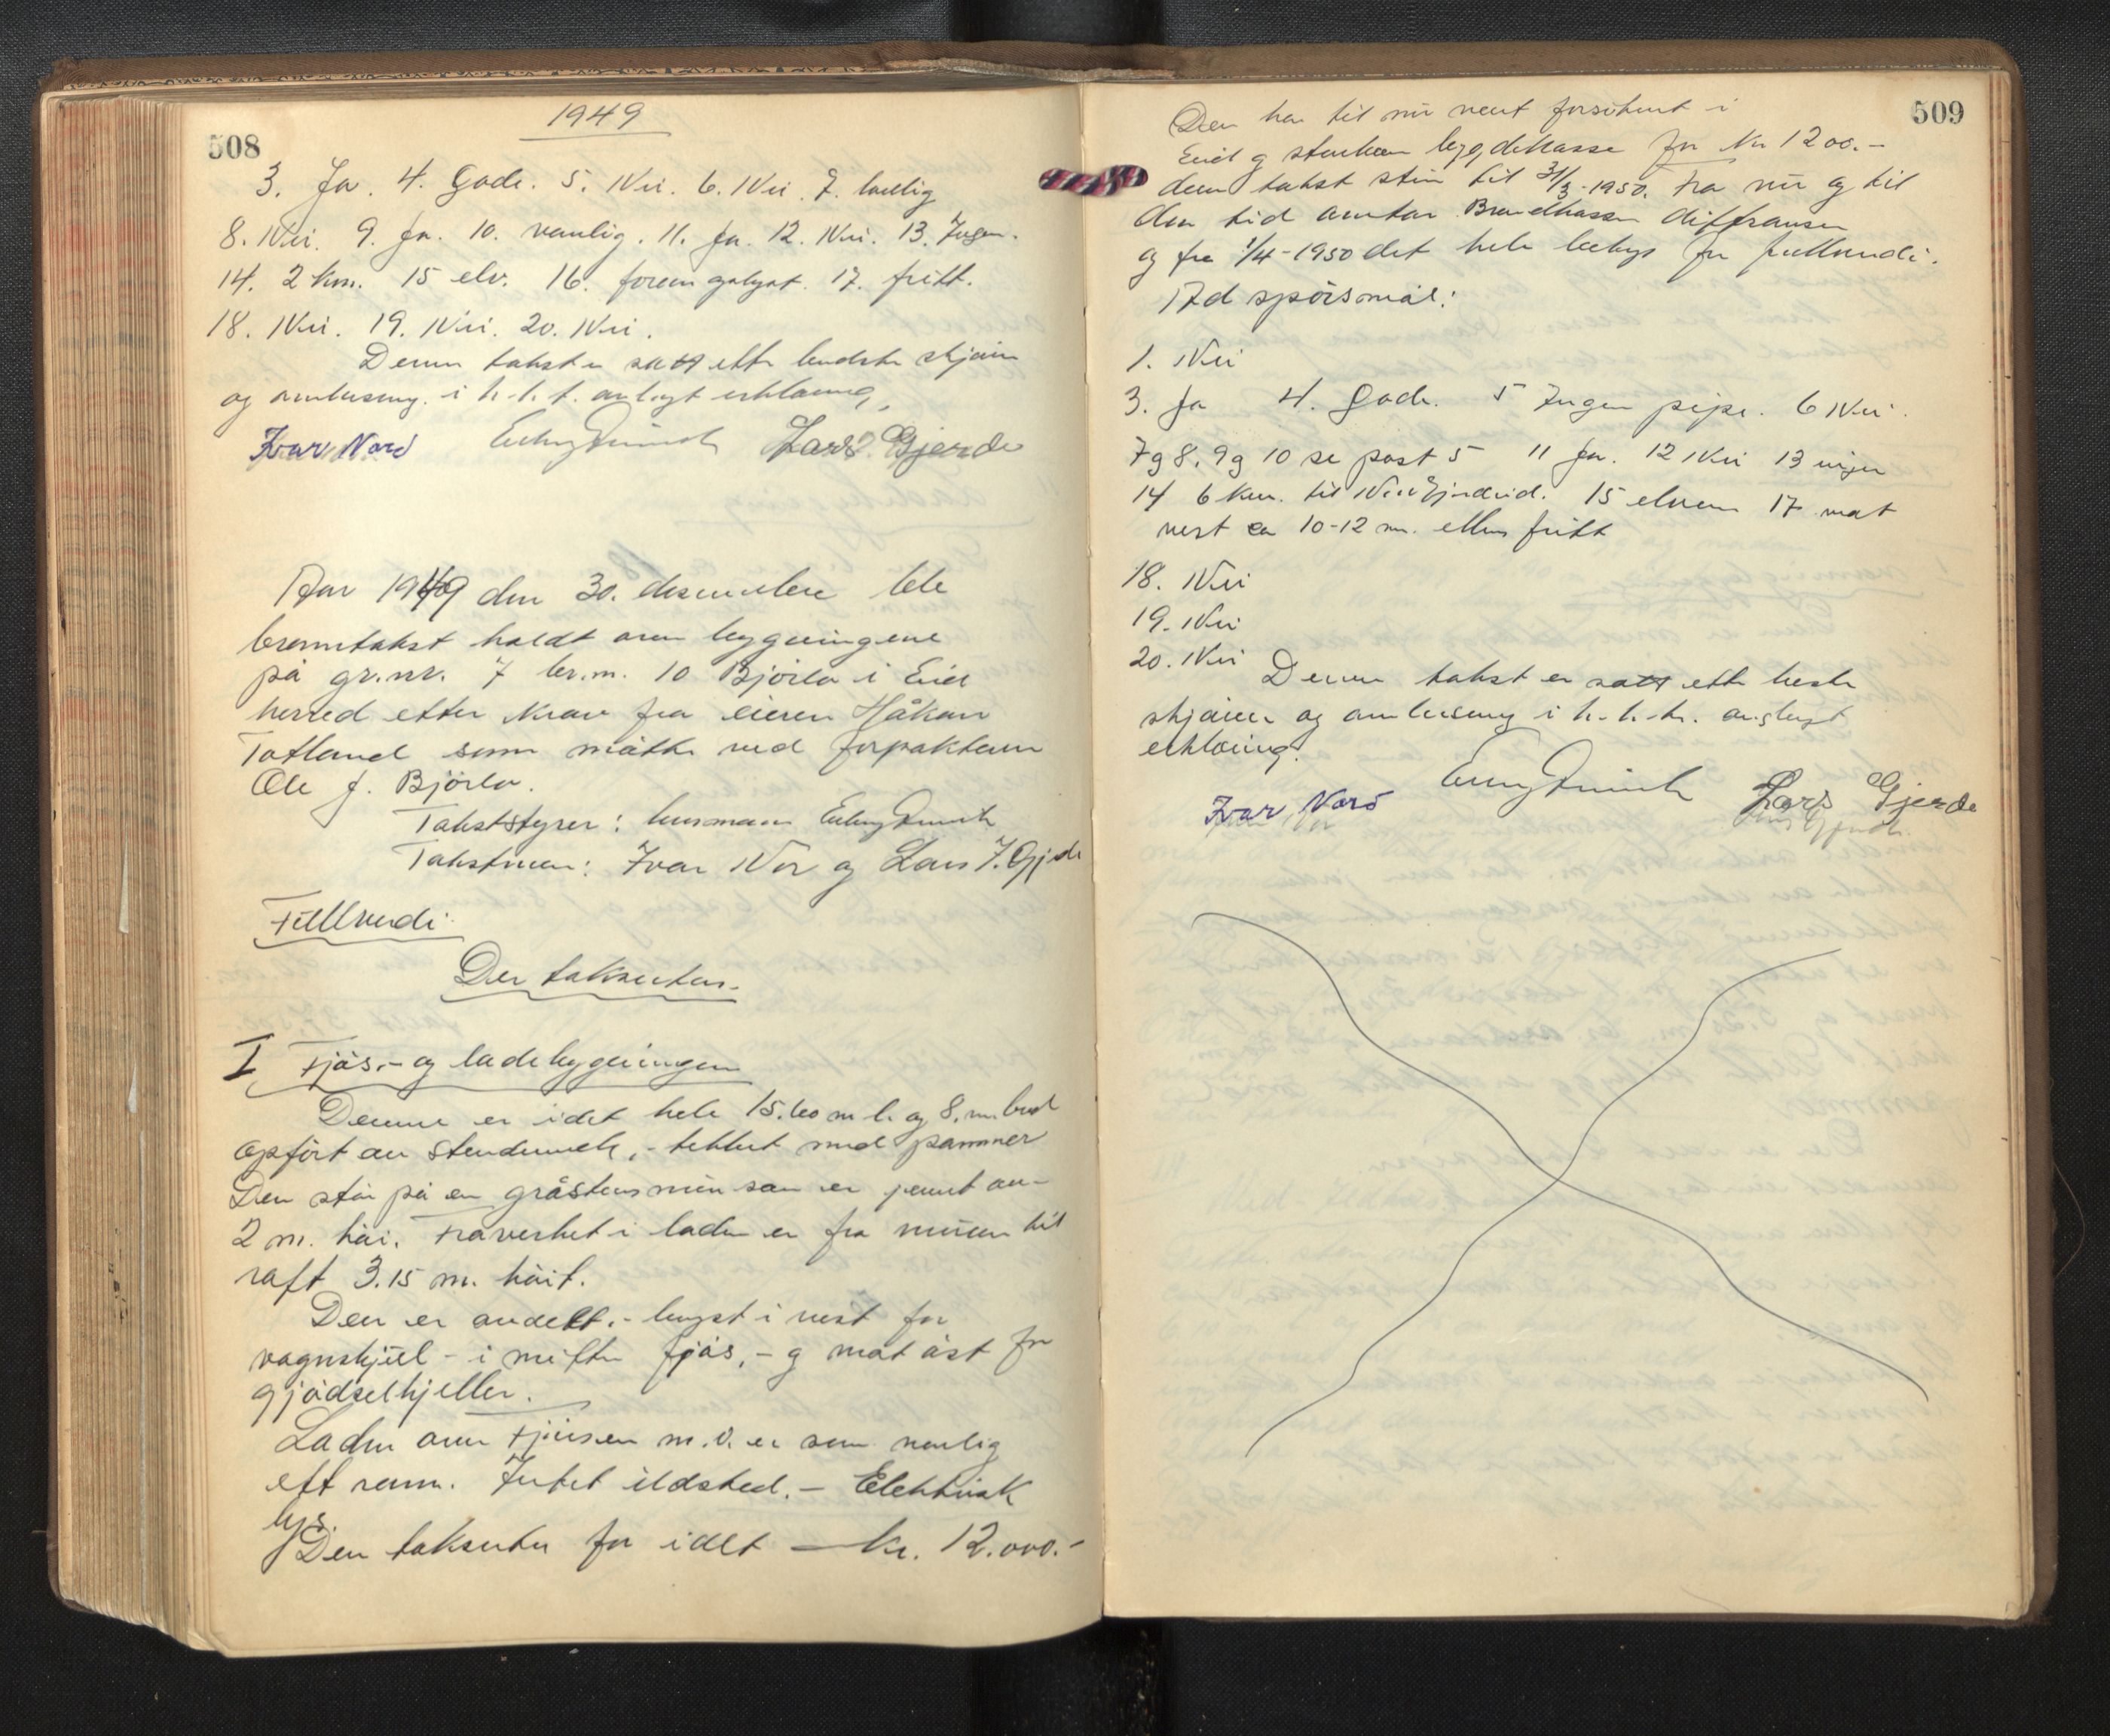 1949
508
3. Ja. 4. Gode. 5. Nei. 6. Nei. 7. lovlig
8. Nei. 9. Ja. 10. vanlig. 11. Ja. 12. Nei. 13. Ingen.
14. 2 km. 15 elv. 16. 17. fritt.
18. Nei. 19. Nei. 20. Nei.
Denne takst er satt efter bedste skjøn
og i h. t. avlagt erklæring,
Ivar Nord Lars Gjerde
Aar 1949 den 30. desember ble
branntakst holdt over bygningene
på gr.nr. 7 br.nr. 10 Bjørlo i Eid
herred etter krav fra eieren Håkon
Totland som møtte ved forpakteren
Ole J. Bjørlo.
Takststyrer: lensmann
Takstmenn: Ivar Nor og Lars J. Gjerde
Fullverdi.
Der takseres.
I Fjøs,- og ladebygningen
Denne er i det hele 15.60 m l. og 8. m. bred
opført av stenderverk, - tekket med panner
Den står på en gråstensmur som er jevnt over
2 m. høi. Traverket i laden er fra muren til
raft 3.15 m. høit.
Den er avdelt. - lengst i vest for
vognskjul - i midten fjøs, - og mot øst for
gjødselkjeller.
Laden over fjøset m.v. er som vanlig
ett rom. Intet ildsted. - Elektrisk
lys.
Den takseres for i det — kr. 12.000.-
509
Den har til nu vært forsikret i
Eid og bygdekasse for kr 1200.-
denne takst står til 31/3-1950. Fra nu og til
den tid overtar Brandkassen differansen
og fra 1/4-1950 det hele beløp for fullverdi.
Ad spørsmål:
1. Nei
3. Ja 4. Gode. 5 Ingen pipe. 6 Nei.
7 og 8, 9 og 10 se post 5 11 Ja. 12 Nei 13 ingen
14 6 km. til Nordfjordeid. 15 elven 17 mot
vest ca 10-12 m. ellers fritt
18. Nei
19. Nei
20. Nei
Denne takst er satt efter beste
skjønn og i h. t. avlagt
erklæring.
Ivar Nord Lars Gjerde